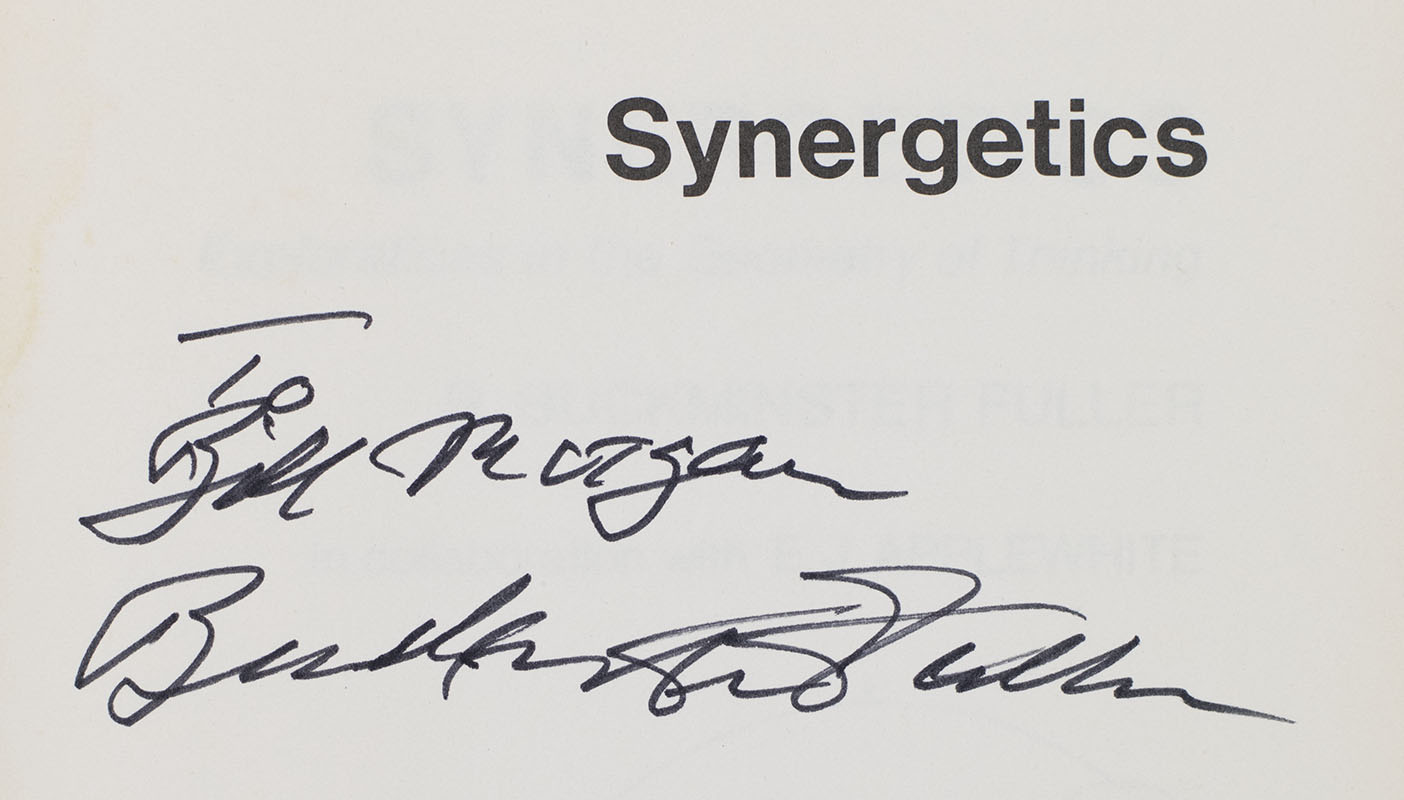 Synergetics
To
Bill Morgan
Buckminster Fuller